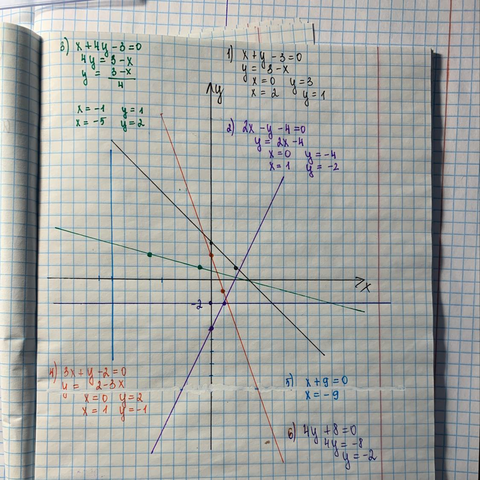 3) x + 4y - 3 = 0
4y = 3 - x
y = 3-x / 4
x = -1 y = 1
x = -5 y = 2
1) x + y - 3 = 0
y = 3 - x
x = 0 y = 3
x = 2 y = 1
y
2) 2x - y - 4 = 0
y = 2x - 4
x = 0 y = -4
x = 1 y = -2
x
-2
4) 3x + y - 2 = 0
y = 2 - 3x
x = 0 y = 2
x = 1 y = -1
5) x + 9 = 0
x = -9
6) 4y + 8 = 0
4y = -8
y = -2